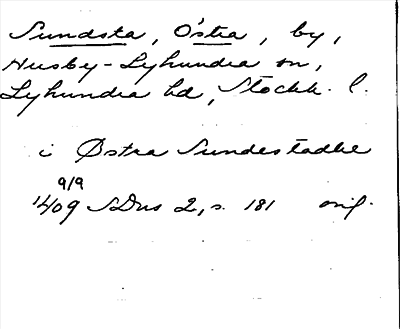 Sundsta, Östra, by,
Husby-Lyhundra sn,
Lyhundra hd, Stockh. l.
i Østra Sundestadhe
9/9
1409 SDns 2, s. 181 orig.